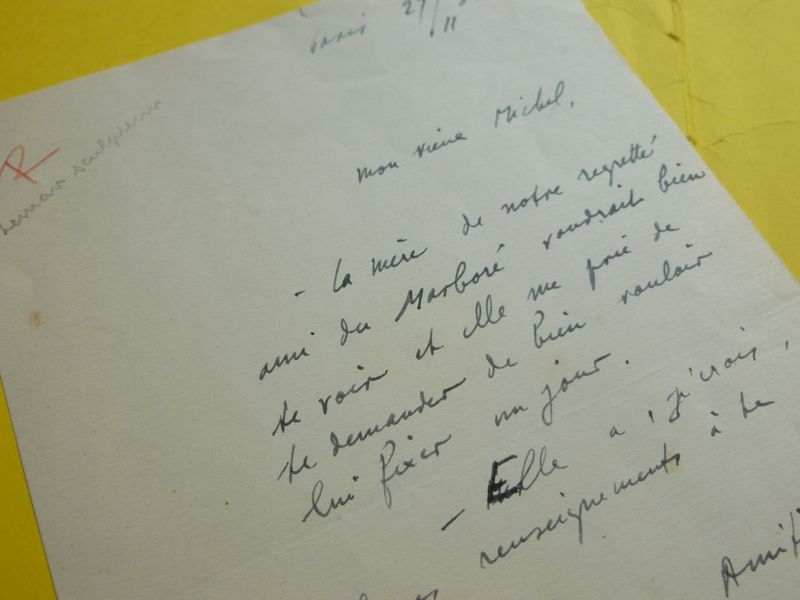 Paris 27/11
Leman sculpteur
mon vieux Michel,
- La mère de notre regretté
ami du Marboré voudrait bien
te voir et elle me prie de
te demander de bien vouloir
lui fixer un jour.
- Elle a, j'crois,
renseignements à te
Amiti